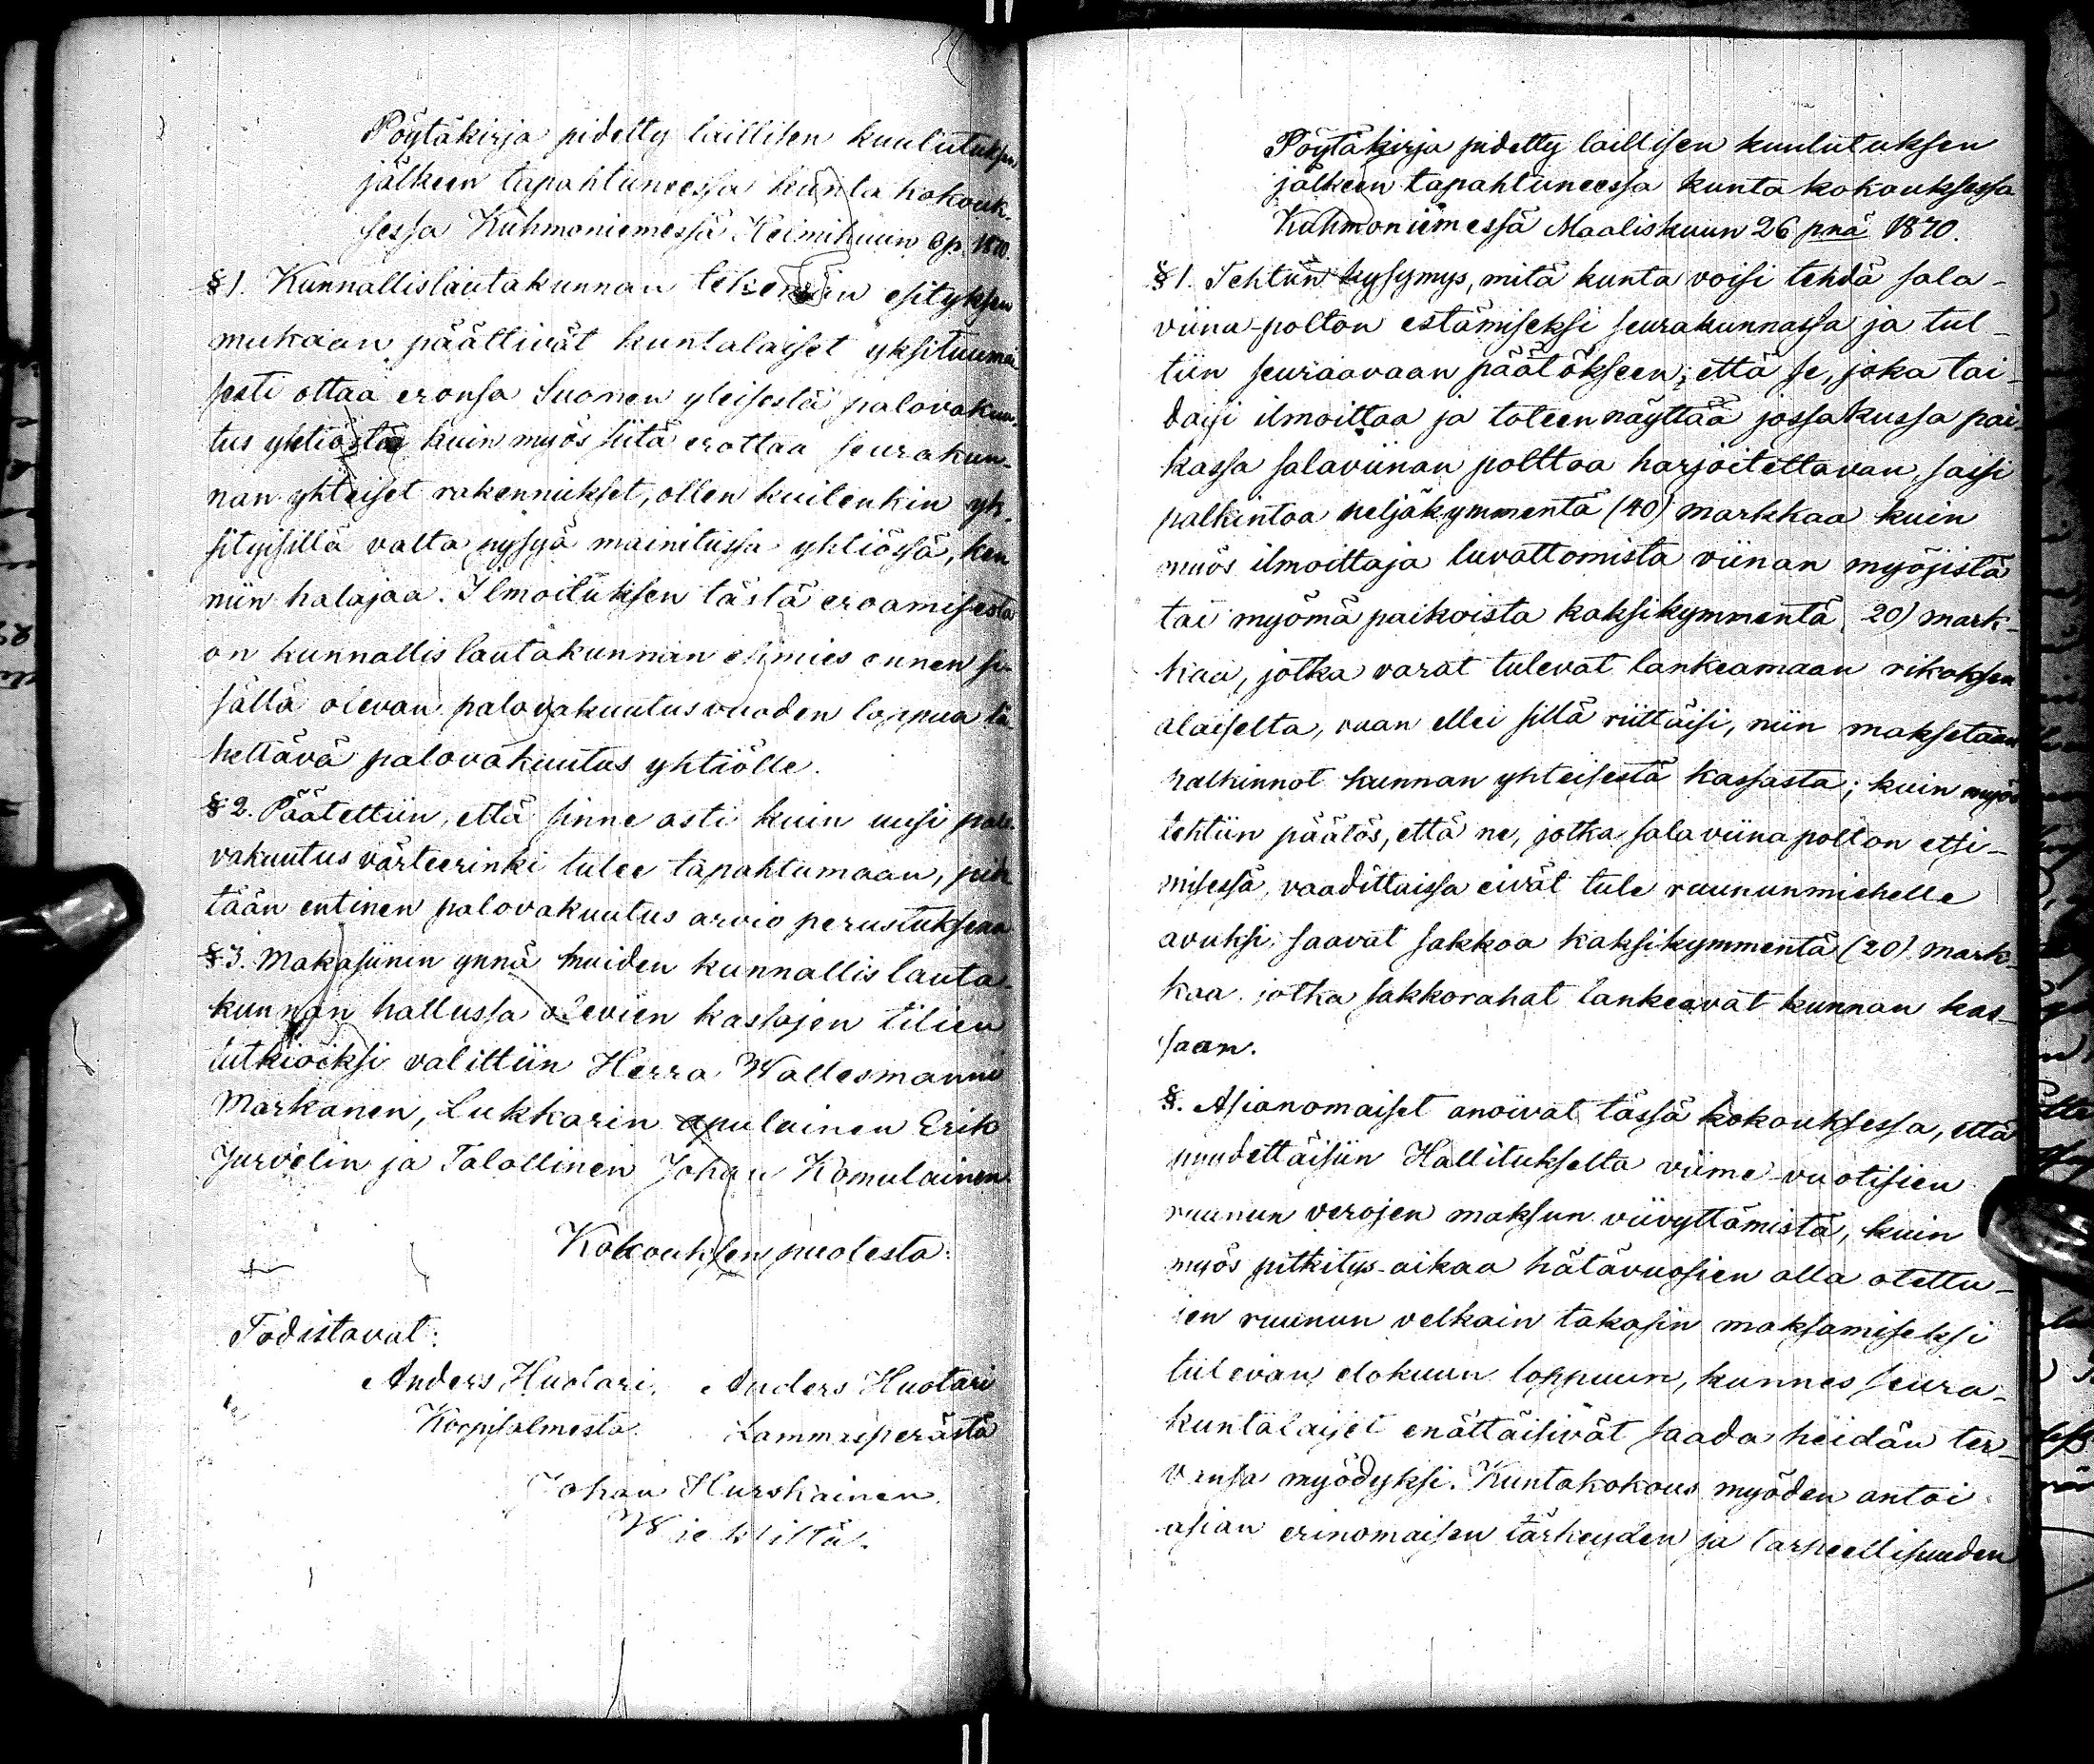 Pöytäkirja pidetty laillisen kuulutuksen
jälkeen tapahtuneessa kunta kokouk-
sessa Kuhmoniemessä Helmikuun 6 p. 1870.
§ 1. Kunnallislautakunnan tekemän esityksen
mukaan päättivät kuntalaiset yksituumai-
sesti ottaa eronsa Suomen yleisestä palovakuu-
tus yhtiöstä kuin myös siitä erottaa seurakun-
nan yhteiset rakennukset, ollen kuitenkin yk-
sityisillä valta pysyä mainitussa yhtiössä, ken
niin halajaa. Ilmoituksen tästä eroamisesta
on kunnallislautakunnan esimies ennen si-
sällä olevan palovakuutusvuoden loppua lä-
hettävä palovakuutus yhtiölle.
§ 2. Päätettiin, että sinne asti kuin uusi palo-
vakuutus värteerinki tulee tapahtumaan, pide-
tään entinen palovakuutus arvio perustuksena
§ 3. Makasiinin ynnä muiden kunnallislauta-
kunnan hallussa olevien kassojen tilien
tutkioiksi valittiin Herra Wallesmanni
Markanen, Lukkarin apulainen Erik
Jurvelin ja Talollinen Johan Komulainen
Kokouksen puolesta:
Todistavat:
Anders Huotari, Anders Huotari
Korpisalmesta Lammasperästä
Johan Hurskainen
Wiekistä.
Pöytäkirja pidetty laillisen kuulutuksen
jälkeen tapahtuneessa kunta kokouksessa
Kuhmoniemessä Maaliskuun 26 pnä 1870.
§ 1. Tehtiin kysymys, mitä kunta voisi tehdä sala-
viina-polton estämiseksi seurakunnassa ja tul-
tiin seuraavaan päätökseen; että se, joka tai-
daisi ilmoittaa ja toteen näyttää jossakussa pai-
kassa salaviinan polttoa harjoitettavan, saisi
palkintoa neljäkymmentä (40) markkaa kuin
myös ilmoittaja luvattomista viinan myöjistä
tai myömä paikoista kaksikymmentä (20) mark-
kaa, jotka varat tulevat lankeamaan rikoksen
alaiselta, vaan ellei sillä riittäisi, niin maksetaan
palkinnot kunnan yhteisestä kassasta; kuin myös
tehtiin päätös, että ne, jotka salaviinapolton etsi-
misessä vaadittaissa eivät tule ruununmiehelle
avuksi, saavat sakkoa kaksikymmentä (20) mark-
kaa. jotka sakkorahat lankeavat kunnan kas-
saan.
§. Asianomaiset anoivat tässä kokouksessa, että
pyydettäisiin Hallitukselta viime-vuotisien
ruunun verojen maksun viivyttämistä, kuin
myös pitkitys-aikaa hätävuosien alla otettu-
jen ruunun velkain takasin maksamiseksi
tulevan elokuun loppuun, kunnes seura-
kuntalaiset enättäisivät saada heidän ter-
vansa myödyksi. Kuntakokous myöden antoi
asian erinomaisen tärkeyden ja tarpeellisuuden